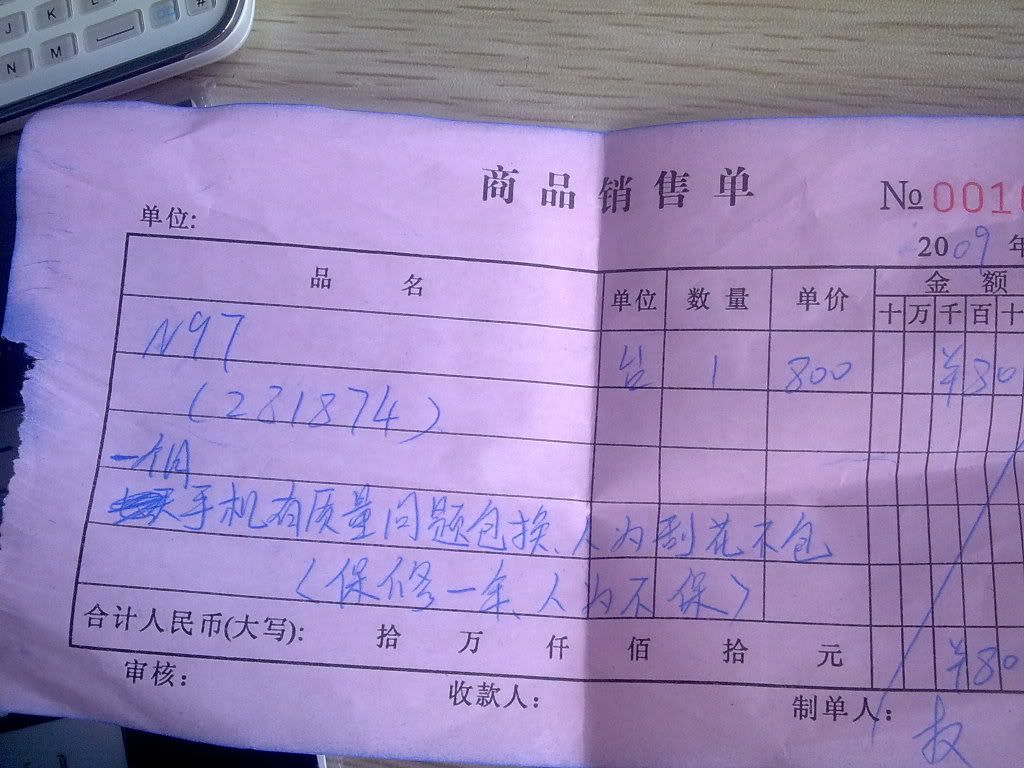 J K L
N M #
商品销售单
№ 0010
单位:
2009年
品名 单位 数量 单价 金额
十 万 千 百 十
N97 台 1 800 ¥80
(281874)
一个月
手机有质量问题包换、人为刮花不包
(保修一年、人为不保)
合计人民币(大写): 拾 万 仟 佰 拾 元 ¥80
审核: 收款人: 制单人: